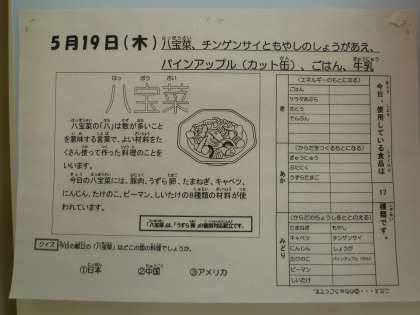 5月19日(木) 八宝菜、チンゲンサイともやしのしょうがあえ、
パインアップル(カット缶)、ごはん、牛乳
八宝菜
八宝菜の「八」は数が多いこと
を意味する言葉で、よい材料をた
くさん使って作った料理のことを
いいます。
今日の八宝菜には、豚肉、うずら卵、たまねぎ、キャベツ、
にんじん、たけのこ、ピーマン、しいたけの8種類の材料が使
われています。
クイズ 今日の献立の「八宝菜」はどこの国の料理でしょうか。
①日本 ②中国 ③アメリカ
今日、使用している食品は 17 種類です。
き
(エネルギーのもとになる)
ごはん
サラダあぶら
さとう
でんぷん
あか
(からだをつくるもとになる)
ぎゅうにゅう
ぶたにく
うずらたまご
みどり
(からだのちょうしをととのえる)
たまねぎ もやし
キャベツ チンゲンサイ
にんじん しょうが
たけのこ パインアップル(かん)
ピーマン
しいたけ